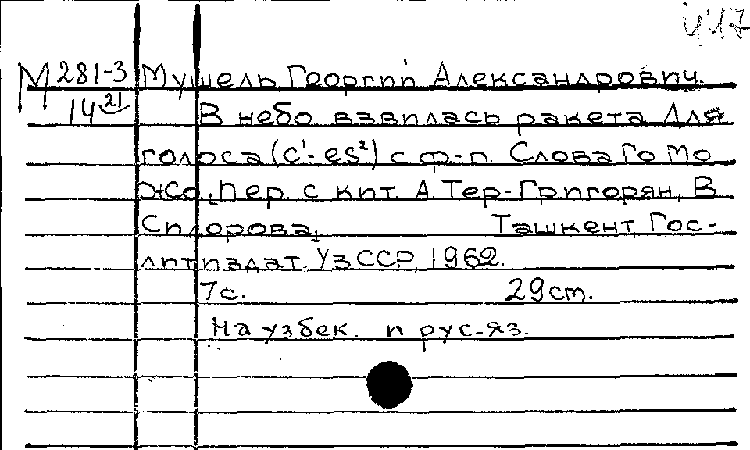 417
М 281-3 Мушель Георгий Александрович.
14 21 В небо взвилась ракета Для
голоса (c'- es²) с ф-п. Слова Го Мо
Жо, Пер. с кит. А Тер-Григорян, В
Сидорова, Ташкент Гос-
литиздат УзССР, 1962.
7с. 29cm.
На узбек. и рус-яз.